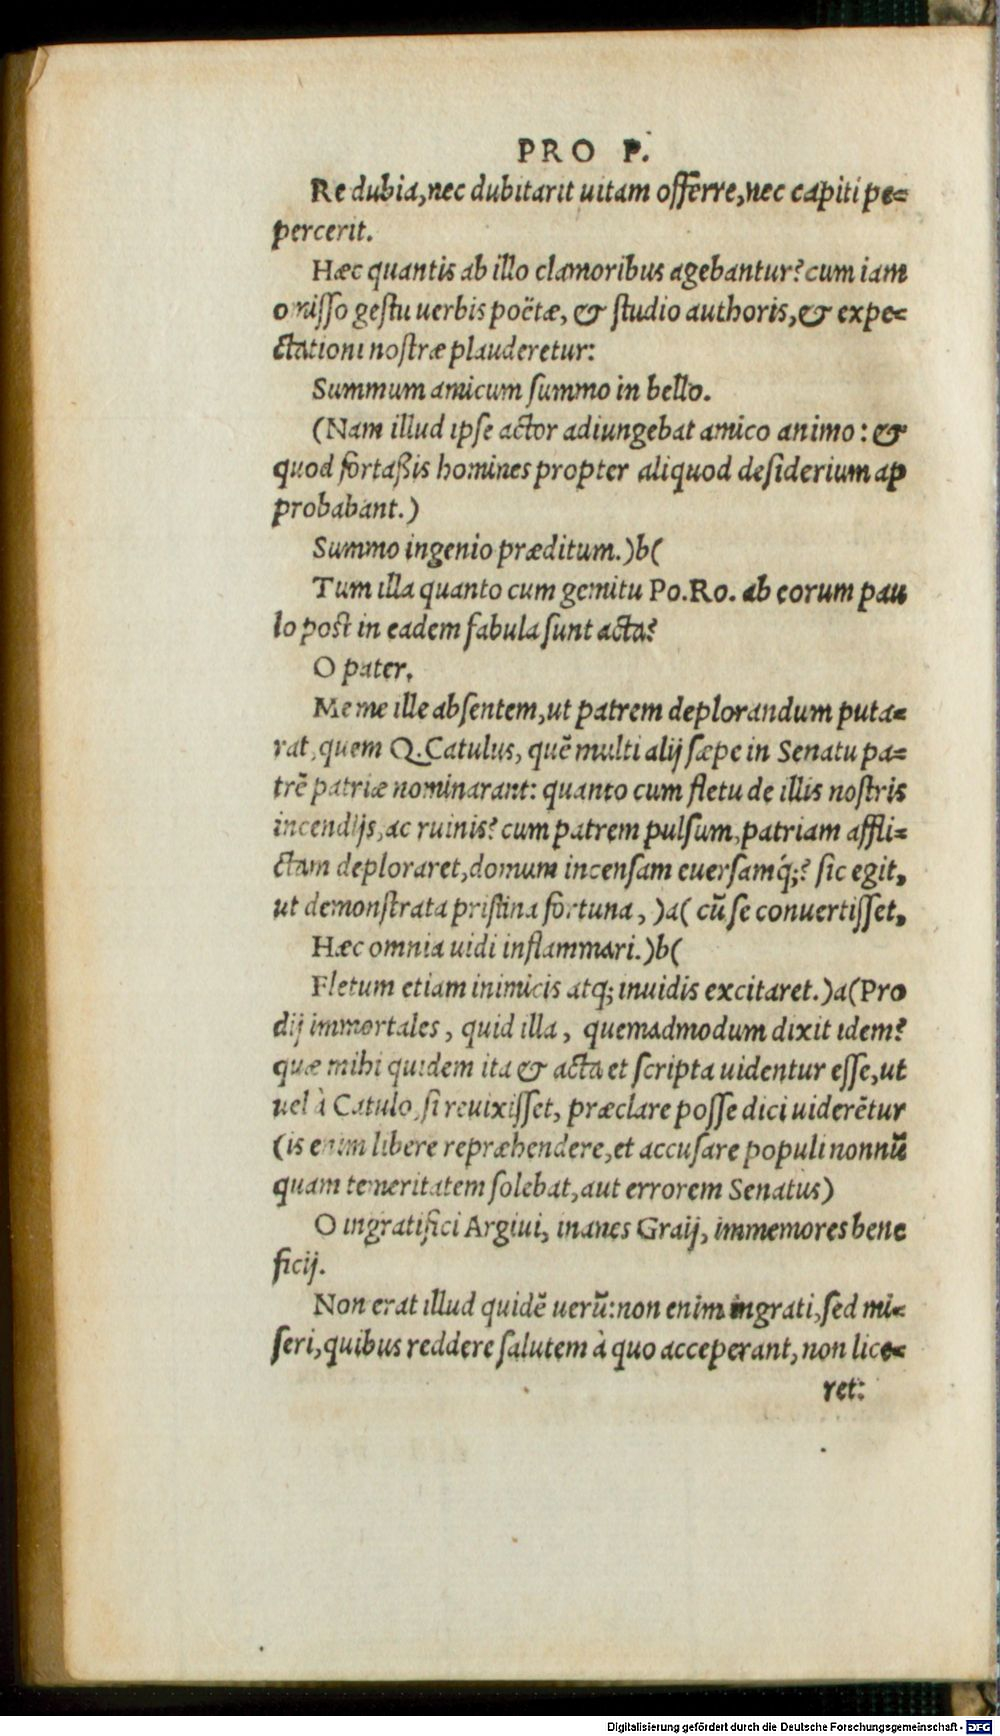 PRO P.
Re dubia, nec dubitarit uitam offerre, nec capiti pe=
percerit.
Hæc quantis ab illo clamoribus agebantur? cum iam
omisso gestu uerbis poëtæ, & studio authoris, & expe=
ctationi nostræ plauderetur:
Summum amicum summo in bello.
(Nam illud ipse actor adiungebat amico animo: &
quod fortaßis homines propter aliquod desiderium ap
probabant.)
Summo ingenio præditum.)b(
Tum illa quanto cum gemitu Po.Ro. ab eorum pau
lo post in eadem fabula sunt acta?
O pater.
Me me ille absentem, ut patrem deplorandum puta=
rat, quem Q. Catulus, quẽ multi alij sæpe in Senatu pa=
trẽ patriæ nominarant: quanto cum fletu de illis nostris
incendijs, ac ruinis? cum patrem pulsum, patriam affli=
ctam deploraret, domum incensam euersamq́;? sic egit,
ut demonstrata pristina fortuna, )a( cũ se conuertisset,
Hæc omnia uidi inflammari.)b(
Fletum etiam inimicis atq; inuidis excitaret.)a(Pro
dij immortales, quid illa, quemadmodum dixit idem?
quæ mihi quidem ita & acta et scripta uidentur esse, ut
uel à Catulo, si reuixisset, præclare posse dici uiderẽtur
(is enim libere repræhendere, et accusare populi nonnũ
quam temeritatem solebat, aut errorem Senatus)
O ingratifici Argiui, inanes Graij, immemores bene
ficij.
Non erat illud quidẽ uerũ: non enim ingrati, sed mi=
seri, quibus reddere salutem à quo acceperant, non lice=
ret:
Digitalisierung gefördert durch die Deutsche Forschungsgemeinschaft - DFG